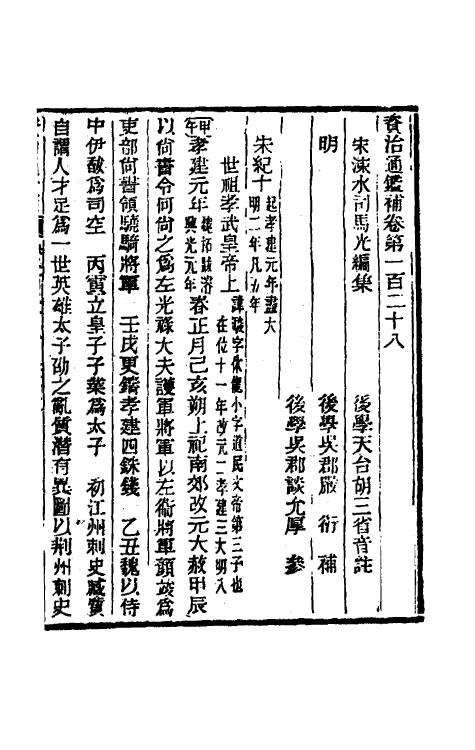 資治通鑑補卷第一百二十八
宋涑水司馬光編集　後學天台胡三省音註
明　後學吳郡嚴　衍　補
後學吳郡談允厚　參
宋紀十起孝建元年盡大明二年凡五年
世祖孝武皇帝上諱駿字休龍小字道民文帝第三子也在位十一年改元二孝建三大明八
甲午孝建元年魏拓跋濬興光元年春正月己亥朔上祀南郊改元大赦甲辰
以尚書令何尚之爲左光祿大夫護軍將軍以左衛將軍顏竣爲
吏部尚書領驍騎將軍　壬戌更鑄孝建四銖錢　乙丑魏以侍
中伊馛爲司空　丙寅立皇子子業爲太子　初江州刺史臧質
自謂人才足爲一世英雄太子劭之亂質潛有異圖以荊州刺史